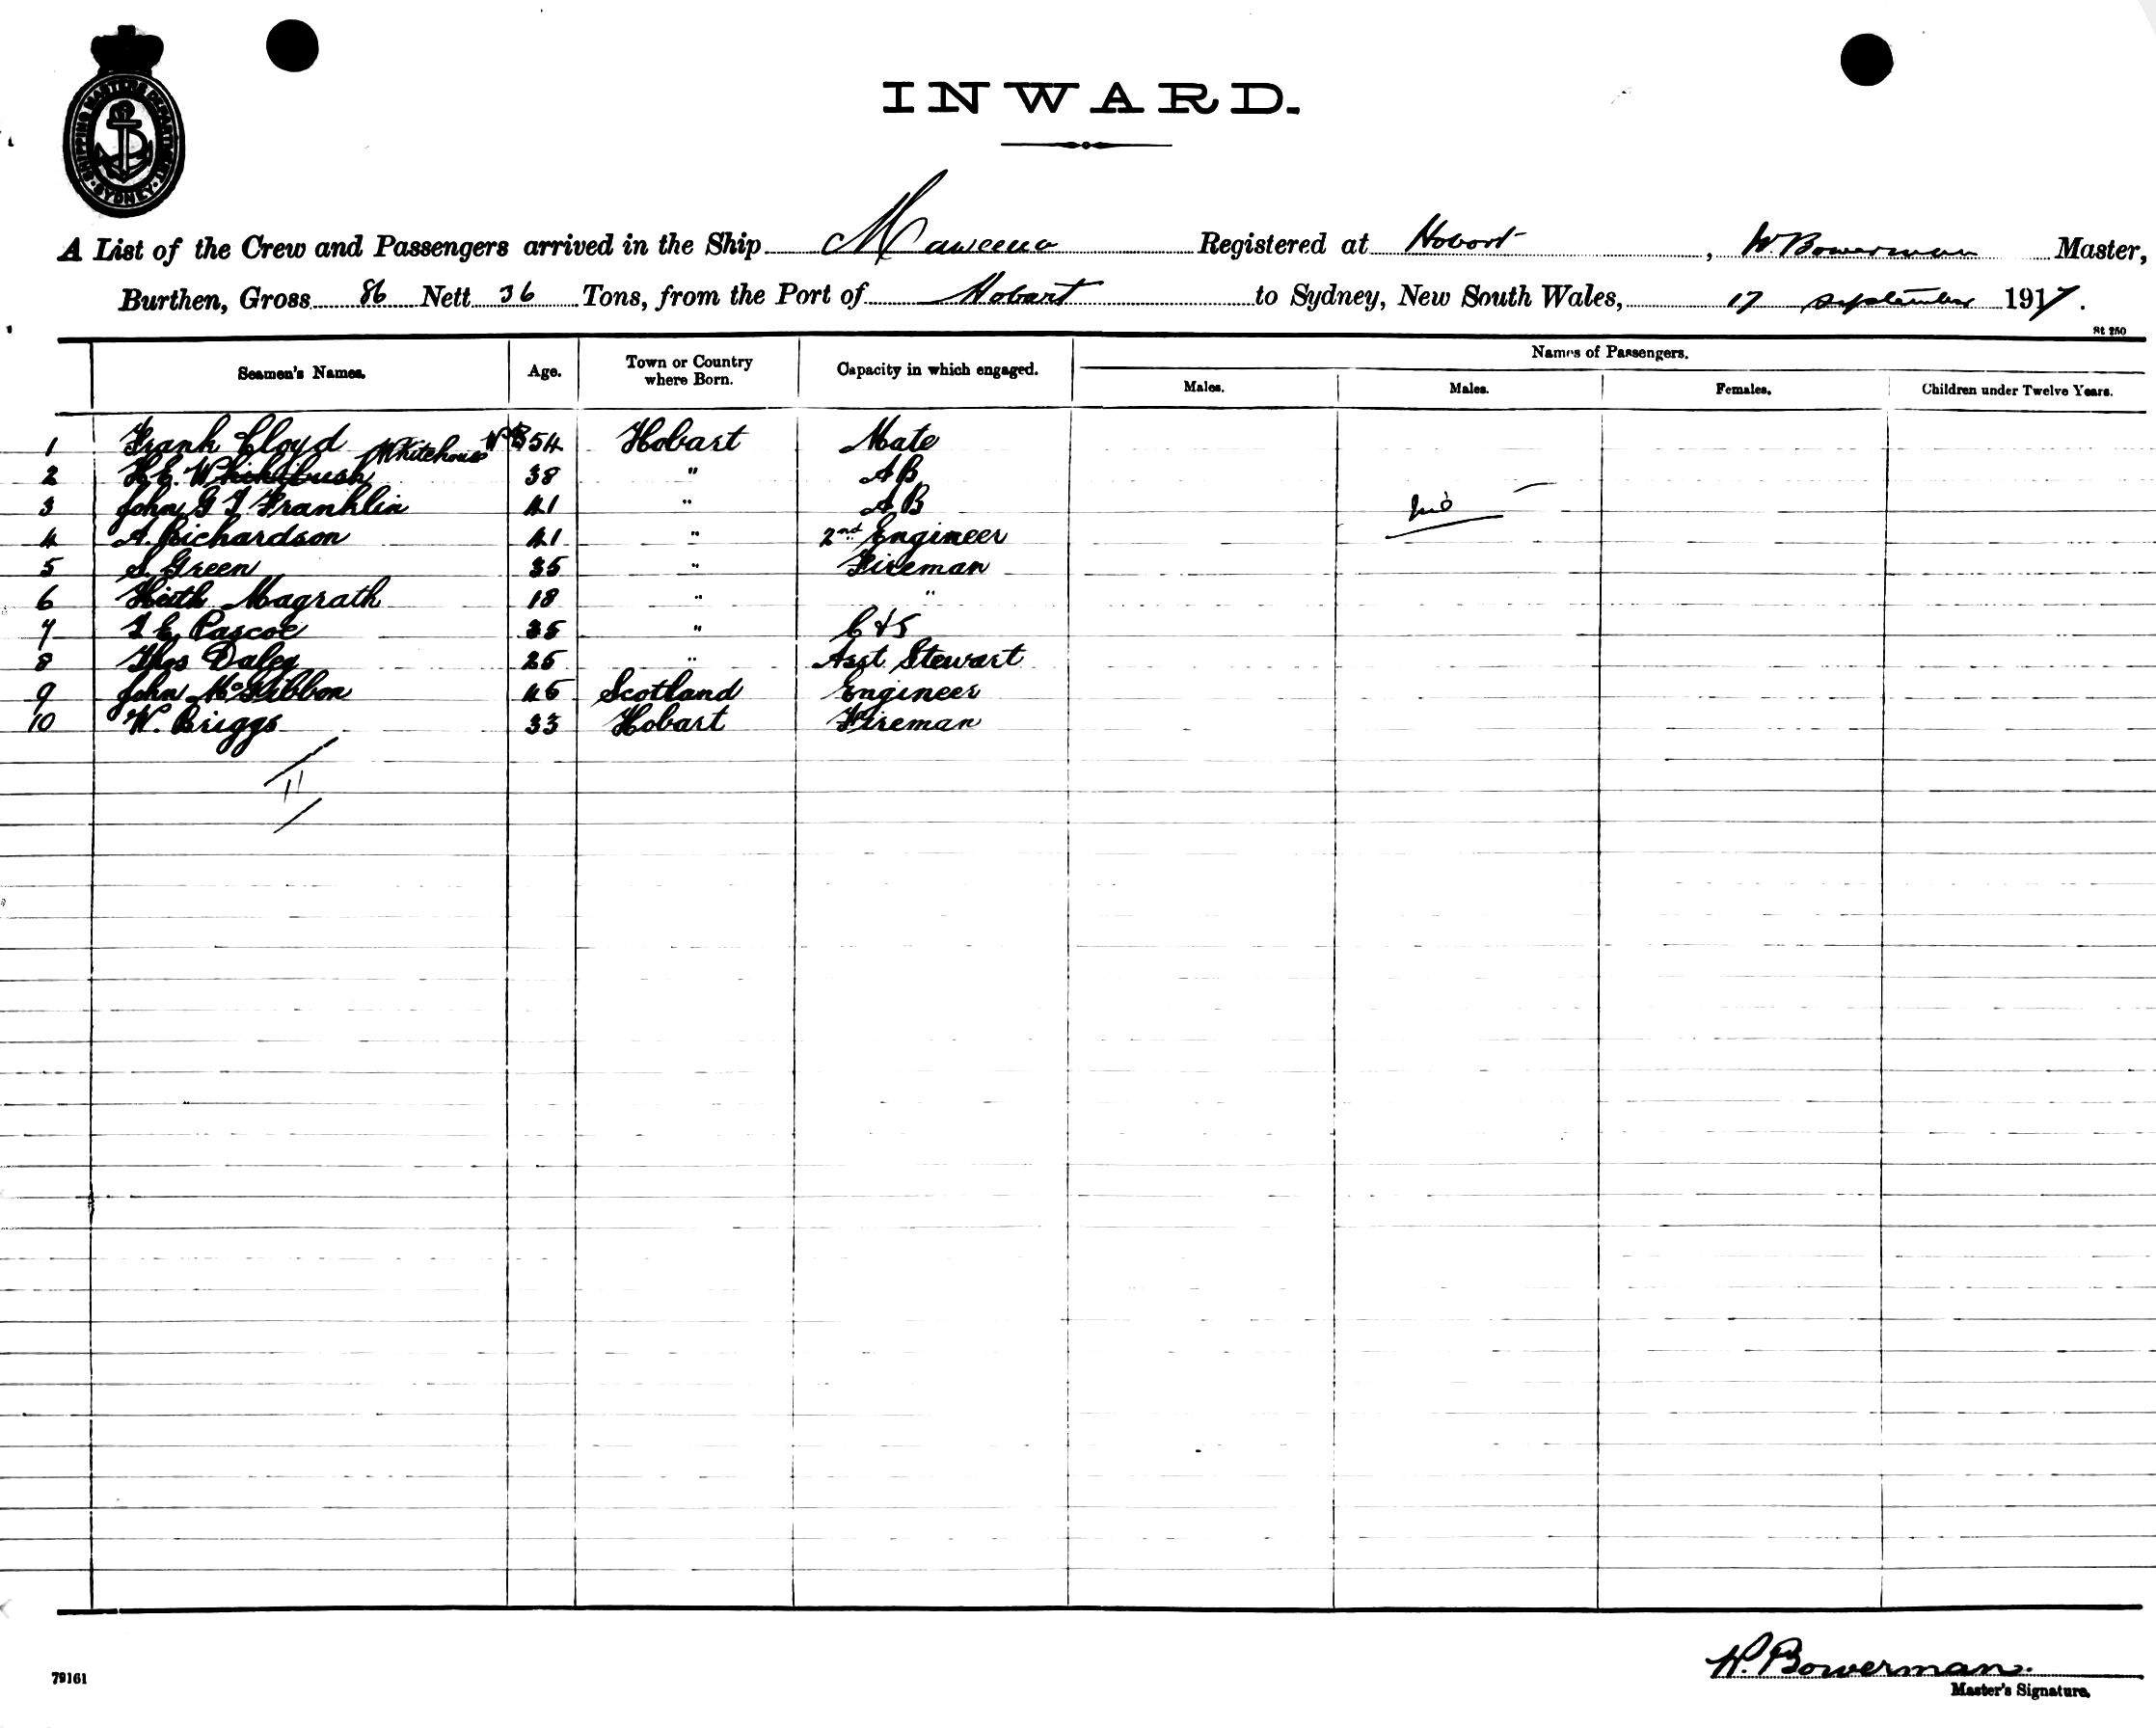 SHIPPING MASTERS DEPARTMENT
SYDNEY
INWARD.
A List of the Crew and Passengers arrived in the Ship Maweena Registered at Hobart, W. Bowerman Master,
Burthen, Gross 86 Nett 36 Tons, from the Port of Hobart to Sydney, New South Wales, 17 September 1917.
St 250
Seamen's Names. Age. Town or Country where Born. Capacity in which engaged. Names of Passengers.
Males. Males. Females. Children under Twelve Years.
1 Frank Lloyd 54 Hobart Mate
Whitehouse WB
2 H E. 38 " AB
3 John G T Franklin 41 " AB
nil
4 A. Richardson 41 " 2nd Engineer
5 S. Green 35 " Fireman
6 Keith Magrath 18 " "
7 T E Pascoe 35 " C & S
8 Thos Daley 25 " Asst Stewart
9 John McGibbon 45 Scotland Engineer
10 W. Briggs 33 Hobart Fireman
11
W. Bowerman.
79161
Master's Signature.